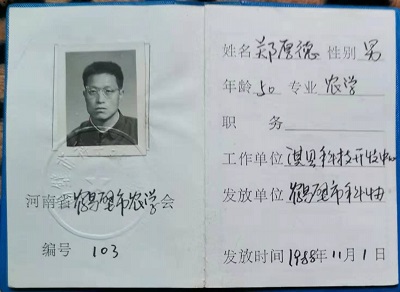 河南省鹤壁市农学会
编号 103
姓名 郑厚德 性别 男
年龄 50 专业 农学
职务
工作单位 淇县科技开发中心
发放单位 鹤壁市科协
发放时间 1988年11月1日